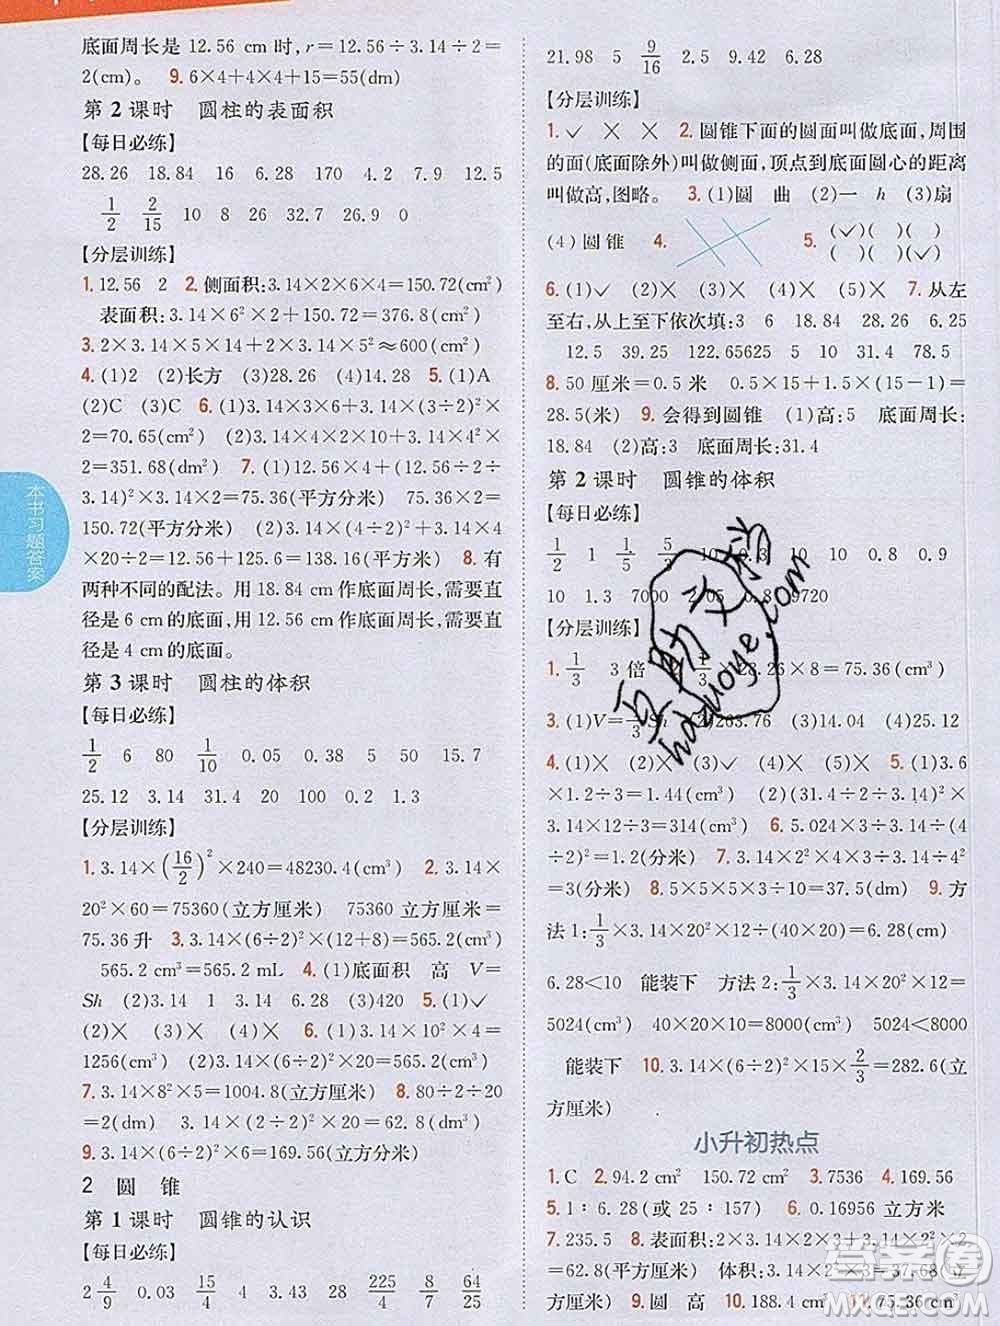 底面周长是 12.56 cm 时,r=12.56÷3.14÷2=
2(cm)。 9.6×4+4×4+15=55(dm)
第 2 课时 圆柱的表面积
【每日必练】
28.26 18.84 16 6.28 170 4.2 7.9 12.5
1/2 2/15 10 8 26 32.7 26.9 0
【分层训练】
1.12.56 2 2.侧面积:3.14×2×6×4=150.72(cm²)
表面积:3.14×6²×2+150.72=376.8(cm²)
3.2×3.14×5×14+3.14×5²≈600(cm²)
4.(1)2 (2)长方 (3)28.26 (4)14.28 5.(1)A
(2)C (3)C 6.(1)3.14×3×6+3.14×(3÷2)²×
2=70.65(cm²) (2)3.14×4×2×10+3.14×4²×
2=351.68(dm²) 7.(1)12.56×6+(12.56÷2÷
3.14)²×3.14×2=75.36(平方分米) 75.36×2=
150.72(平方分米) (2)3.14×(4÷2)²+3.14×4
×20÷2=12.56+125.6=138.16(平方米) 8.有
两种不同的配法。用 18.84 cm 作底面周长,需要直
径是 6 cm 的底面,用 12.56 cm 作底面周长,需要直
径是 4 cm 的底面。
第 3 课时 圆柱的体积
【每日必练】
1/2 6 80 1/10 0.05 0.38 5 50 15.7
25.12 3.14 31.4 20 100 0.2 1.3
【分层训练】
1.3.14×(16/2)²×240=48230.4(cm³) 2.3.14×
20²×60=75360(立方厘米) 75360立方厘米=
75.36 升 3.3.14×(6÷2)²×20=565.2(cm³)
565.2 cm³=565.2 mL 4.(1)底面积 高 V=
Sh (2)3.14 1 3.14 6.28 (3)420 5.(1)✓
(2)× (3)× (4)× 6.(1)3.14×10²×4=
1256(cm³) (2)3.14×(6÷2)²×20=565.2(cm³)
7.3.14×8²×5=1004.8(立方厘米) 8.80÷2÷20
=2(dm) 3.14×(2÷2)²×20=62.8(dm³)
9.3.14×(6÷2)²×6=169.56(立方厘米)
2 圆 锥
第 1 课时 圆锥的认识
【每日必练】
2 4/9 0.03 15/4 4 3 34 28 225/4 8/9 64/25
21.98 5 9/16 2.5 9.42 6.28
【分层训练】
1.✓ × × 2.圆锥下面的圆面叫做底面,周围
的面(底面除外)叫做侧面,顶点到底面圆心的距离
叫做高,图略。 3.(1)圆 曲 (2)一 h (3)扇
(4)圆锥 4. 5.(✓)( )( )( )
( )( )( )(✓)
6.(1)✓ (2)× (3)× (4)× (5)✓ 7.从左
至右,从上至下依次填:3 6 18.84 28.26 6.25
12.5 39.25 122.65625 5 10 31.4 78.5
8.50 厘米=0.5 米 0.5×15+1.5×(15-1)=
28.5(米) 9.会得到圆锥 (1)高:5 底面周长:
18.84 (2)高:3 底面周长:31.4
第 2 课时 圆锥的体积
【每日必练】
1/2 1 1/5 10 10 0.8 0.9
10 1.3 7000 2.05 0.8
【分层训练】
1.1/3 3 倍 2.1/3×28.26×8=75.36(cm³)
3.(1)V=1/3Sh (2)263.76 (3)14.04 (4)25.12
4.(1)× (2)× (3)✓ (4)× 5.(1)3.6
×1.2÷3=1.44(立方分米) (2)(31.4÷3.14÷2)²×
3.14×12÷3=314(cm³) 6.5.024×3÷3.14÷(4
÷2)²=1.2(分米) 7.3.14×2²×4×3÷3.14÷4²
=3(分米) 8.50×3÷(2×2)=37.5(dm) 9.方
法 1:1/3×3.14×20²×12÷(40×20)=6.28(cm)
6.28<10 能装下 方法 2:1/3×3.14×20²×12=
5024(cm³) 40×20×10=8000(cm³) 5024<8000
能装下 10.3.14×(6÷2)²×15×2/3=282.6(立
方厘米)
小升初热点
1.C 2.94.2 150.72 3.7536 4.169.56
5.1:6.28(或 25:157) 6.0.16956 立方米
7.235.5 8.表面积:2×3.14×2+3.14×2²×2
=62.8(平方厘米) 体积:3.14×2²×3=37.68(立
方厘米) 9.圆 高 10.188.4 11.75.36 cm³
本书习题答案
互助文档
hdzuoye.com
答案圈